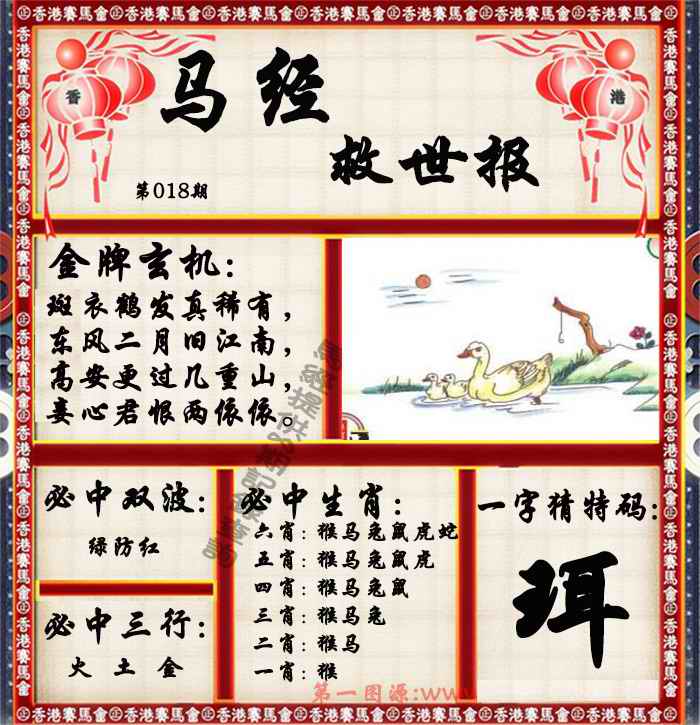 香港賽馬會
香
港
马经
救世报
第018期
金牌玄机:
斑衣鹤发真稀有,
东风二月旧江南,
高安更过几重山,
妾心君恨两依依。
必中双波:
绿防红
必中三行:
火 土 金
必中生肖:
六肖: 猴马兔鼠虎蛇
五肖: 猴马兔鼠虎
四肖: 猴马兔鼠
三肖: 猴马兔
二肖: 猴马
一肖: 猴
一字猜特码:
珥
第一图源:www